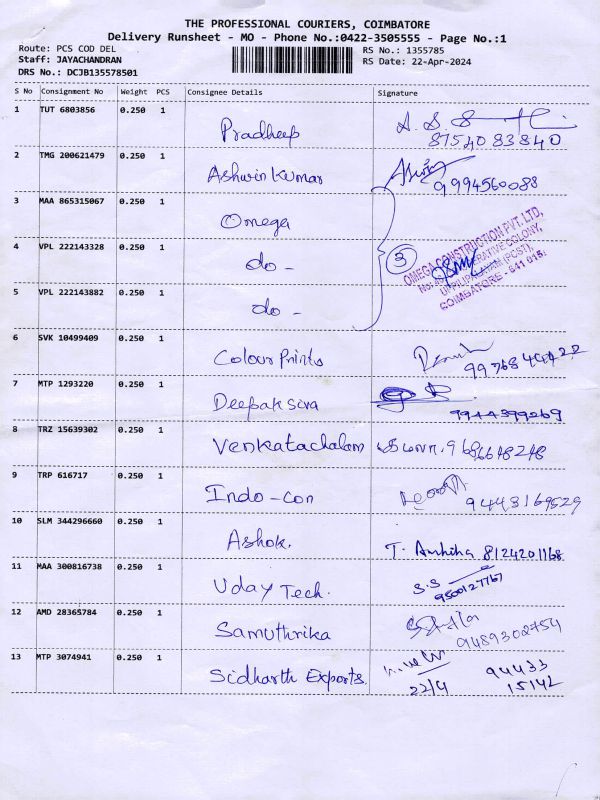 THE PROFESSIONAL COURIERS, COIMBATORE
Delivery Runsheet - MO - Phone No.:0422-3505555 - Page No.:1
Route: PCS COD DEL RS No.: 1355785
Staff: JAYACHANDRAN RS Date: 22-Apr-2024
DRS No.: DCJB135578501
S No Consignment No Weight PCS Consignee Details Signature
1 TUT 6803856 0.250 1 Pradheep
8754083840
2 TMG 200621479 0.250 1 Ashwin Kumar
9994560088
3 MAA 865315067 0.250 1 Omega
4 VPL 222143328 0.250 1 do - 3
OMEGA CONSTRUCTION PVT. LTD,
UPPILIPALAYAM (POST),
COIMBATORE - 641 015.
5 VPL 222143882 0.250 1 do -
6 SVK 10499409 0.250 1 Colour Prints
7 MTP 1293220 0.250 1 Deepak siva
9944399269
8 TRZ 15639302 0.250 1 Venkatachalam
9 TRP 616717 0.250 1 Indo-Con
9443169529
10 SLM 344296660 0.250 1 Ashok. T. 8124201168
11 MAA 300816738 0.250 1 Uday Tech. S.S
9500127767
12 AMD 28365784 0.250 1 Samuthrika
9489302754
13 MTP 3074941 0.250 1 Sidharth Exports. 94433
22/4 15142